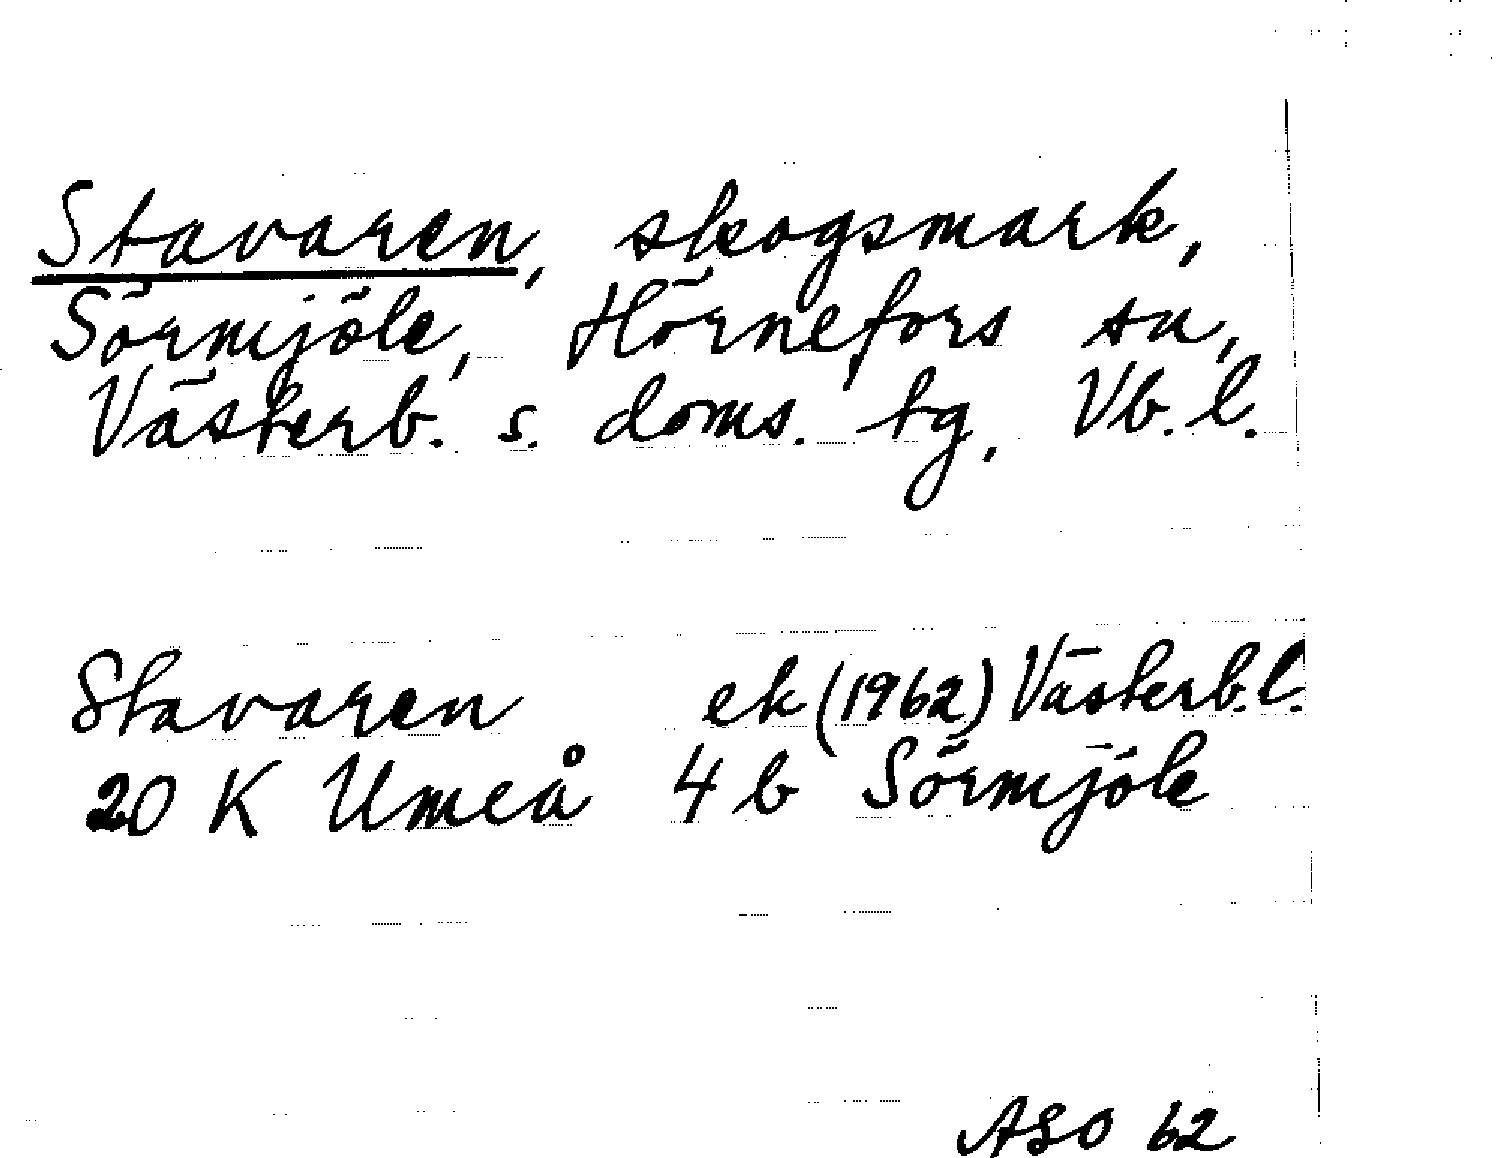 Stavaren, skogsmark,
Sörmjöle, Hörnefors sn,
Västerb. s. doms. tg, Vb. l.
Stavaren ek (1962) Västerb. l.
20 K Umeå 4 b Sörmjöle
ASO 62